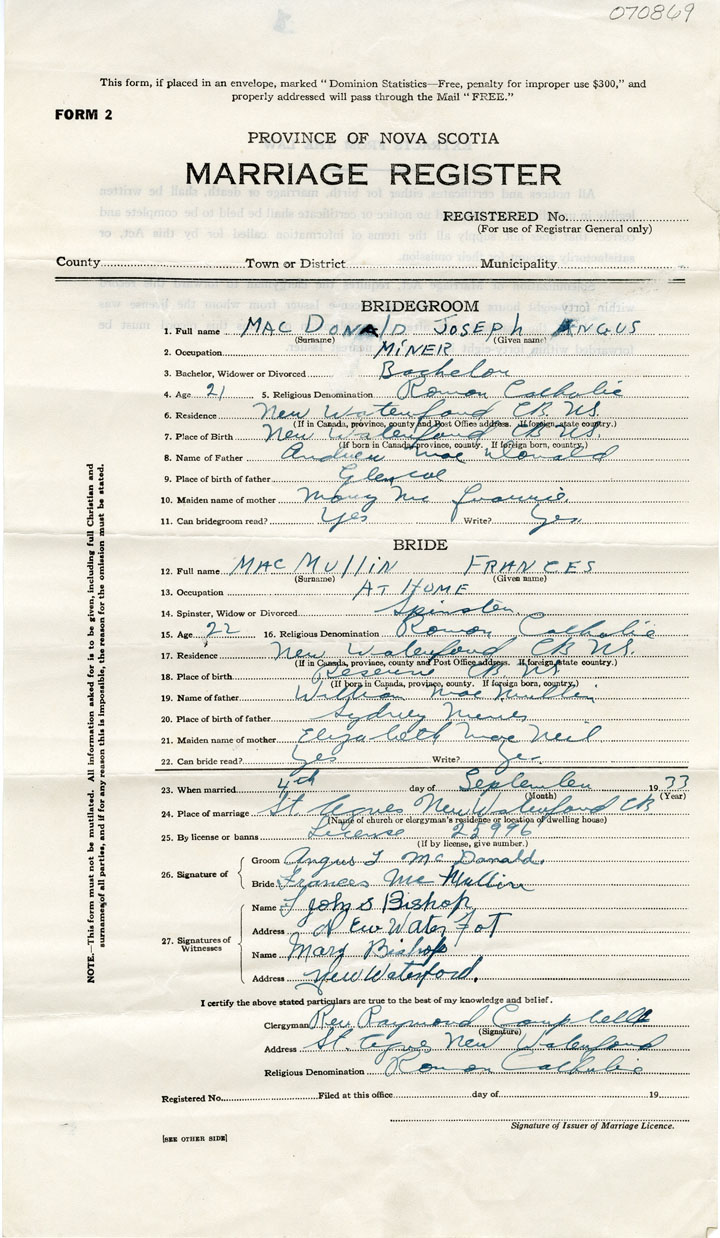 070869
This form, if placed in an envelope, marked “Dominion Statistics—Free, penalty for improper use $300,” and
properly addressed will pass through the Mail “FREE.”
FORM 2
PROVINCE OF NOVA SCOTIA
MARRIAGE REGISTER
REGISTERED No.
(For use of Registrar General only)
County Town or District Municipality
BRIDEGROOM
1. Full name MAC DONALD JOSEPH ANGUS
(Surname) (Given name)
2. Occupation MINER
3. Bachelor, Widower or Divorced Bachelor
4. Age 21 5. Religious Denomination Roman Catholic
6. Residence New Waterford CB. NS.
(If in Canada, province, county and Post Office address. If foreign, state country.)
7. Place of Birth New Waterford CB. NS.
(If born in Canada, province, county. If foreign born, country.)
8. Name of Father Andrew Mac Donald
9. Place of birth of father Glencoe
10. Maiden name of mother Mary Mc
11. Can bridegroom read? Yes Write? Yes
BRIDE
12. Full name MAC MULLIN FRANCES
(Surname) (Given name)
13. Occupation AT HOME
14. Spinster, Widow or Divorced Spinster
15. Age 22 16. Religious Denomination Roman Catholic
17. Residence New Waterford CB NS.
(If in Canada, province, county and Post Office address. If foreign, state country.)
18. Place of birth Reserve CB NS
(If born in Canada, province, county. If foreign born, country.)
19. Name of father William Mac Mullin
20. Place of birth of father Sydney Mines
21. Maiden name of mother Elizabeth Mac Neil
22. Can bride read? Yes Write? Yes
23. When married 4th day of September 1933
(Month) (Year)
24. Place of marriage St. Agnes New Waterford CB
(Name of church or clergyman's residence or location of dwelling house)
25. By license or banns License 23996
(If by license, give number.)
26. Signature of Groom Angus J Mc Donald.
Bride Frances Mc Mullin
27. Signatures of Witnesses Name John S Bishop
Address N Ew Water Fot
Name Mary Bishop
Address New Waterford.
I certify the above stated particulars are true to the best of my knowledge and belief.
Clergyman Rev Raymond Campbell
(Signature)
Address St. Agnes New Waterford
Religious Denomination Roman Catholic
Registered No. Filed at this office day of 19
Signature of Issuer of Marriage Licence.
[SEE OTHER SIDE]
NOTE.—This form must not be mutilated. All information asked for is to be given, including full Christian and
surnames of all parties, and if for any reason this is impossible, the reason for the omission must be stated.